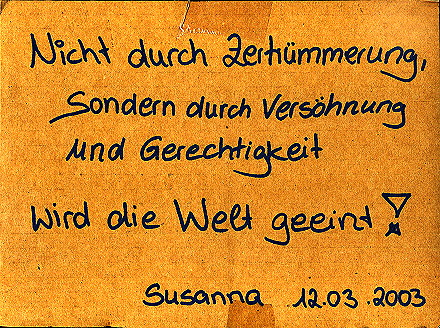 Nicht durch Zertrümmerung,
Sondern durch Versöhnung
und Gerechtigkeit
wird die Welt geeint!
Susanna 12.03.2003